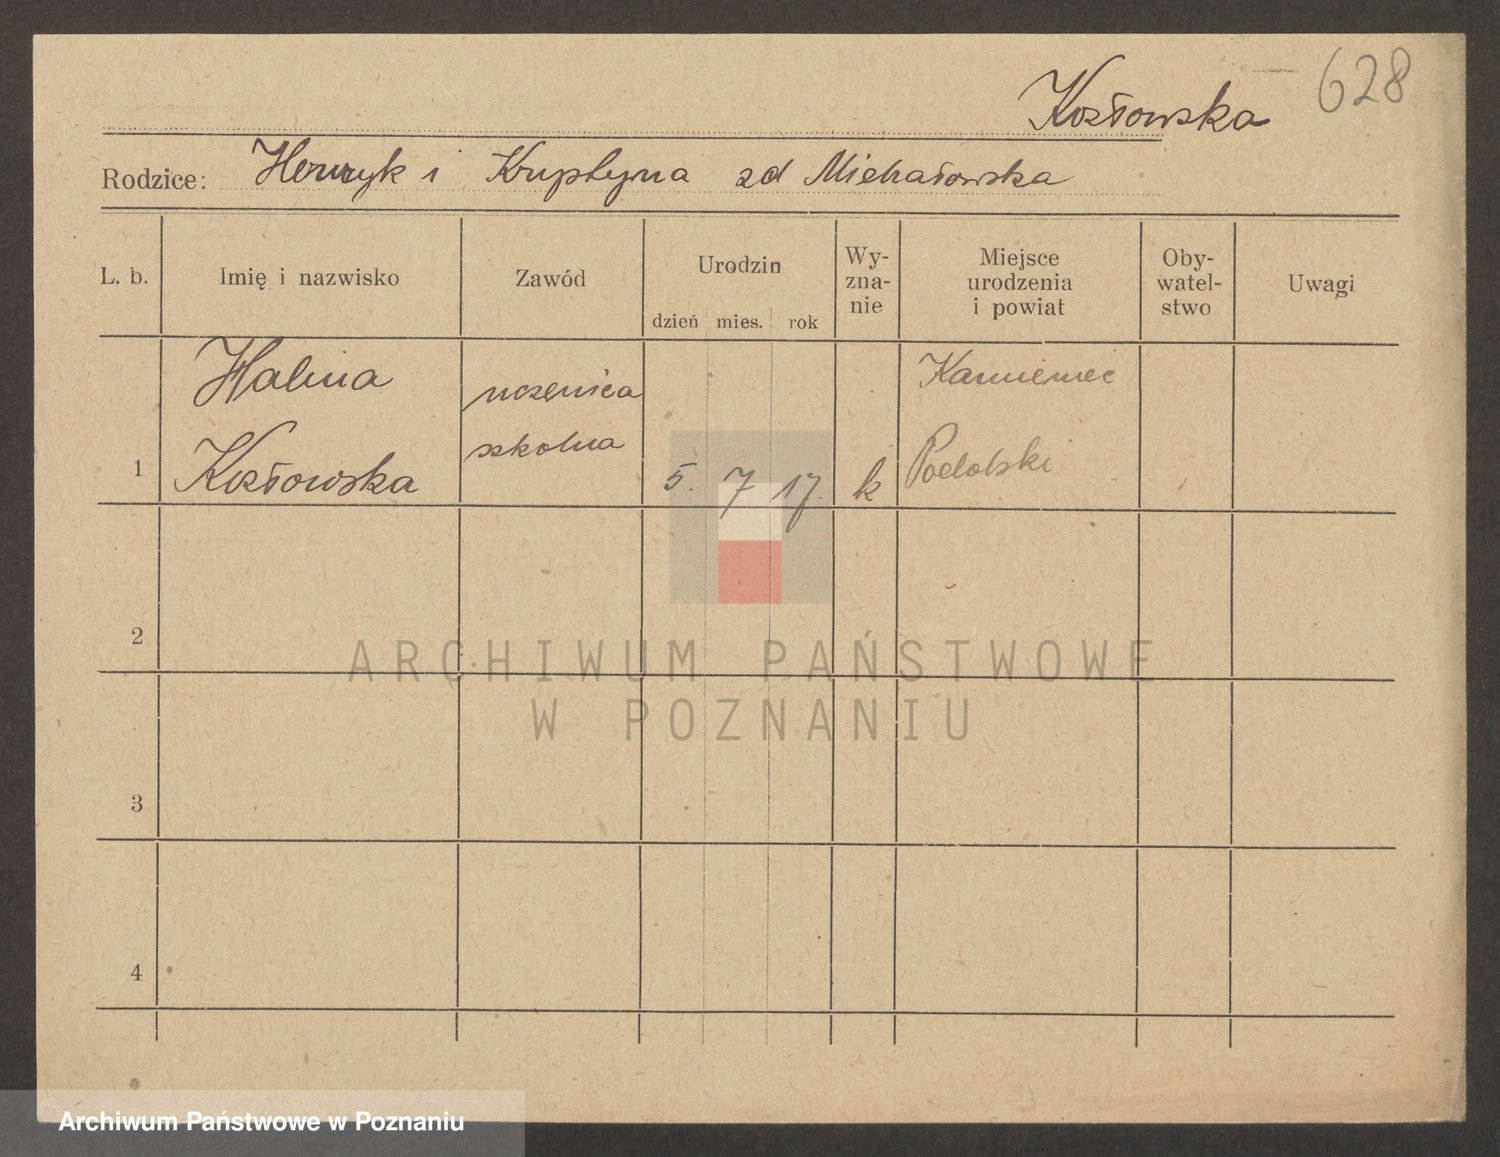 628
Kozłowska
Rodzice: Henryk i Krystyna zd Michałowska
L. b.
Imię i nazwisko
Zawód
Urodzin
dzień mies. rok
Wy-
zna-
nie
Miejsce
urodzenia
i powiat
Oby-
watel-
stwo
Uwagi
1
Halina
Kozłowska
uczenica
szkolna
5. 7 17.
k
Kamieniec
Podolski
2
3
4
ARCHIWUM PAŃSTWOWE
W POZNANIU
Archiwum Państwowe w Poznaniu